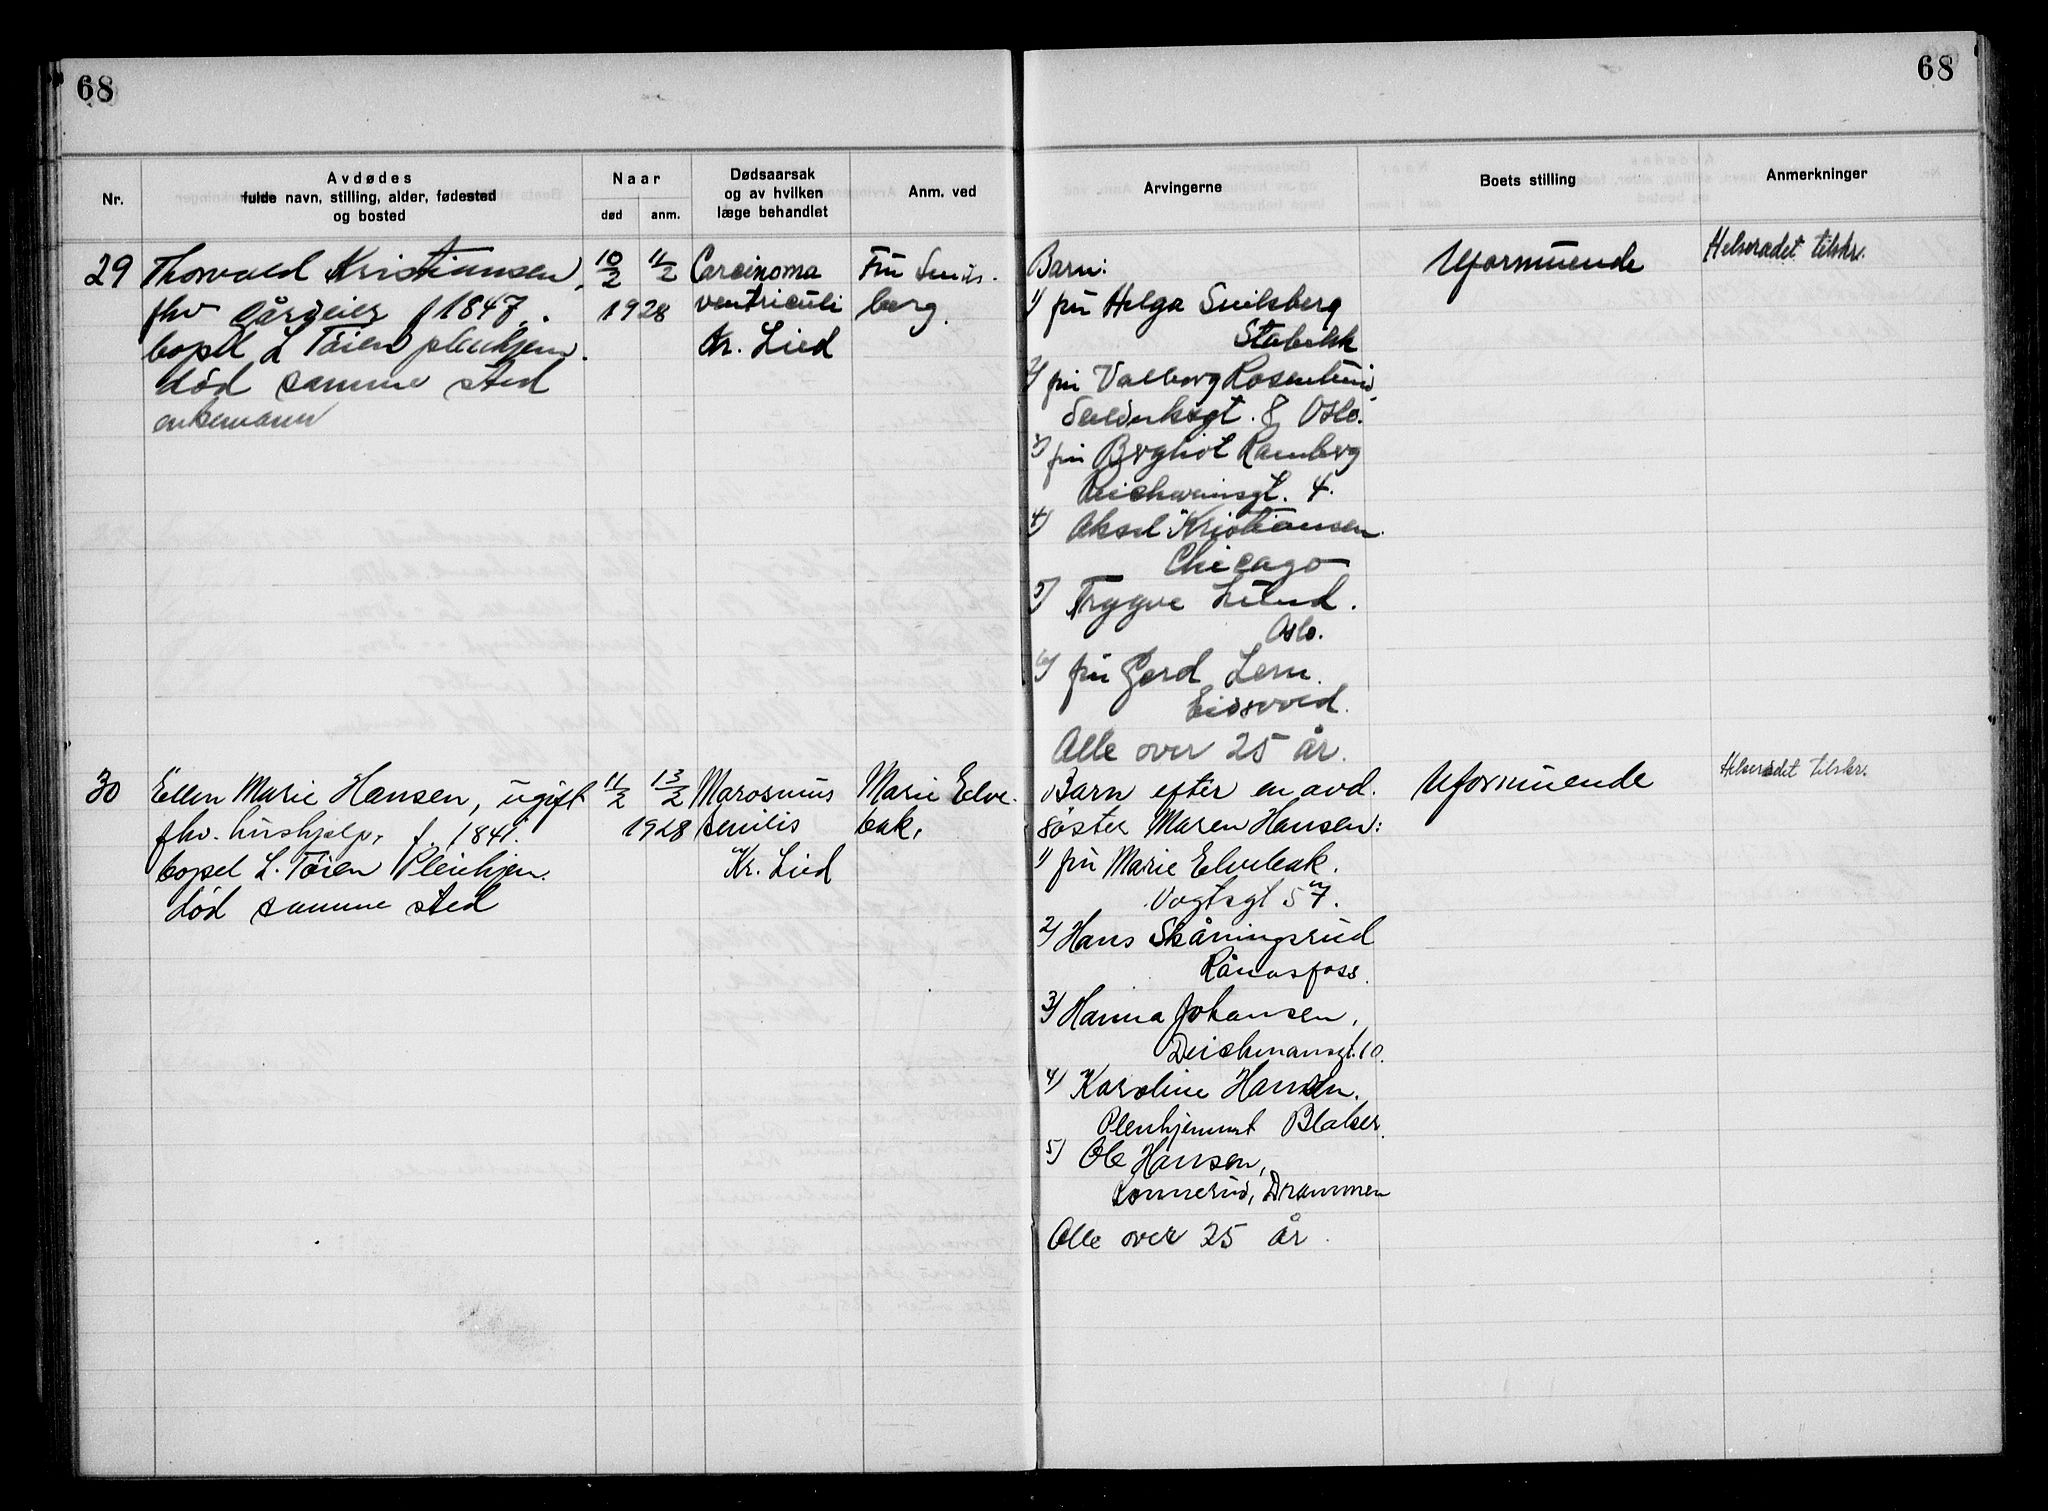 68
68
Nr.
Avdødes
fulde navn, stilling, alder, fødested
og bosted
Naar
død
anm.
Dødsaarsak
og av hvilken
læge behandlet
Anm. ved
Arvingerne
Boets stilling
Anmerkninger
29
Thorvald Kristiansen,
fhv gårdeier f 1847.
bopel L Töien pleiehjem.
död samme sted
enkemann
10/2 11/2
1928
Carcinoma
ventriculi
Kr. Lied
Frü
berg.
Barn:
1) frü Helga
Stabekk
2) frü Valborg Rosenlund
8 Oslo.
3) frü Bergliot Ramberg
Reichweinsgt. 4.
4) Aksel Kristiansen.
Chicago
5) Trygve Lund.
Oslo.
6) frü Gerd Lern.
Eidsvold.
Alle over 25 år.
Uformüende
Helserådet tilskr.
30
Ellen Marie Hansen, ügift
fhv. hüshjelp, f. 1841.
bopel L. Töien Pleiehjem.
död samme sted
11/2 13/2
1928
Marasmüs
senilis
Kr. Lied
Marie Elve-
bak,
Barn efter en avd.
söster Maren Hansen:
1) frü Marie Elvebak.
Vogtsgt 57.
2) Hans Skåningsrüd
Rånåsfoss.
3) Hanna Johansen,
Deichmansgt. 10.
4) Karoline Hansen.
Pleiehjemmet Blaker.
5) Ole Hansen,
Konnerud, Drammen
Alle over 25 år.
Uformüende
Helserådet tilskr.